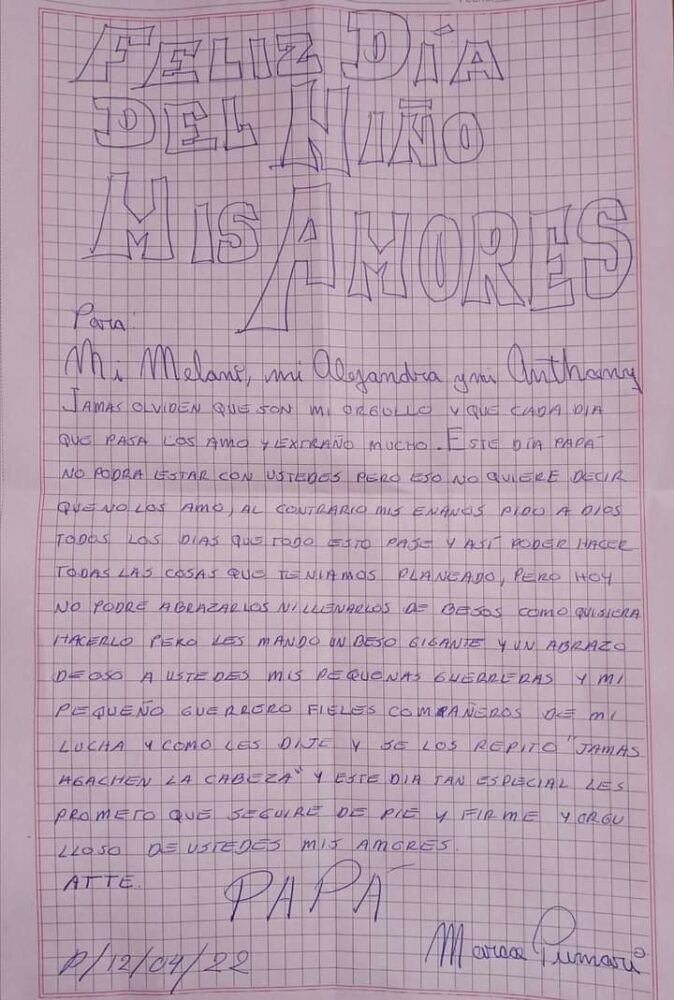 FELIZ DÍA
DEL NIÑO
MIS AMORES
Para:
Mi Melani, mi Alejandra y mi Anthony
JAMAS OLVIDEN QUE SON MI ORGULLO Y QUE CADA DIA
QUE PASA LOS AMO Y EXTRAÑO MUCHO. ESTE DÍA PAPÁ
NO PODRA ESTAR CON USTEDES PERO ESO NO QUIERE DECIR
QUE NO LOS AMO, AL CONTRARIO MIS ENANOS PIDO A DIOS
TODOS LOS DIAS QUE TODO ESTO PASE Y ASÍ PODER HACER
TODAS LAS COSAS QUE TENIAMOS PLANEADO, PERO HOY
NO PODRE ABRAZARLOS NI LLENARLOS DE BESOS COMO QUISIERA
HACERLO PERO LES MANDO UN BESO GIGANTE Y UN ABRAZO
DE OSO A USTEDES MIS PEQUEÑAS GUERRERAS Y MI
PEQUEÑO GUERRERO FIELES COMPAÑEROS DE MI
LUCHA Y COMO LES DIJE Y SE LOS REPITO "JAMAS
AGACHEN LA CABEZA" Y ESTE DIA TAN ESPECIAL LES
PROMETO QUE SEGUIRE DE PIE Y FIRME Y ORGU
LLOSO DE USTEDES MIS AMORES.
ATTE. PAPÁ
Pumari
P/12/04/22